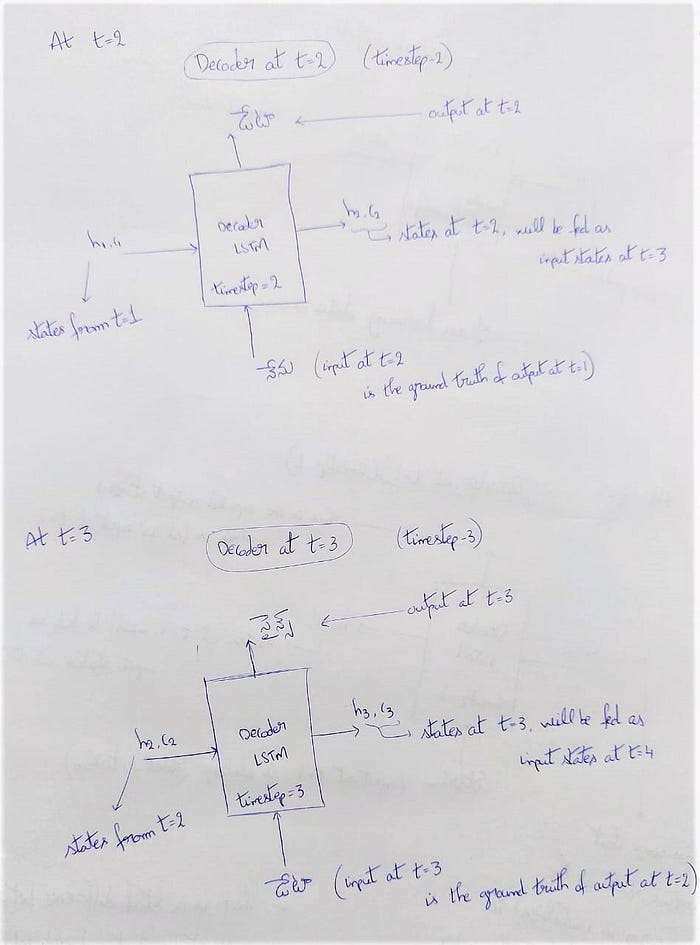 At t=2
Decoder at t=2 (timestep-2)
డేటా
output at t=2
Decoder
LSTM
timestep=2
h1, c1
states from t=1
h2, c2
states at t=2, will be fed as
input states at t=3
నేను (input at t=2
is the ground truth of output at t=1)
At t=3
Decoder at t=3 (timestep-3)
సైన్స్
output at t=3
Decoder
LSTM
timestep=3
h2, c2
states from t=2
h3, c3
states at t=3, will be fed as
input states at t=4
డేటా (input at t=3
is the ground truth of output at t=2)